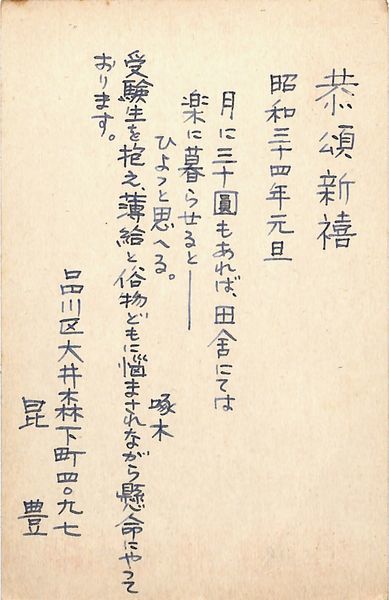 恭頌新禧
昭和三十四年元旦
月に三十圓もあれば、田舎にては
楽に暮らせると――
ひよつと思へる。
啄木
受験生を抱え、薄給と俗物どもに悩まされながら懸命にやつて
おります。
品川区大井森下町四〇九七
昆豊